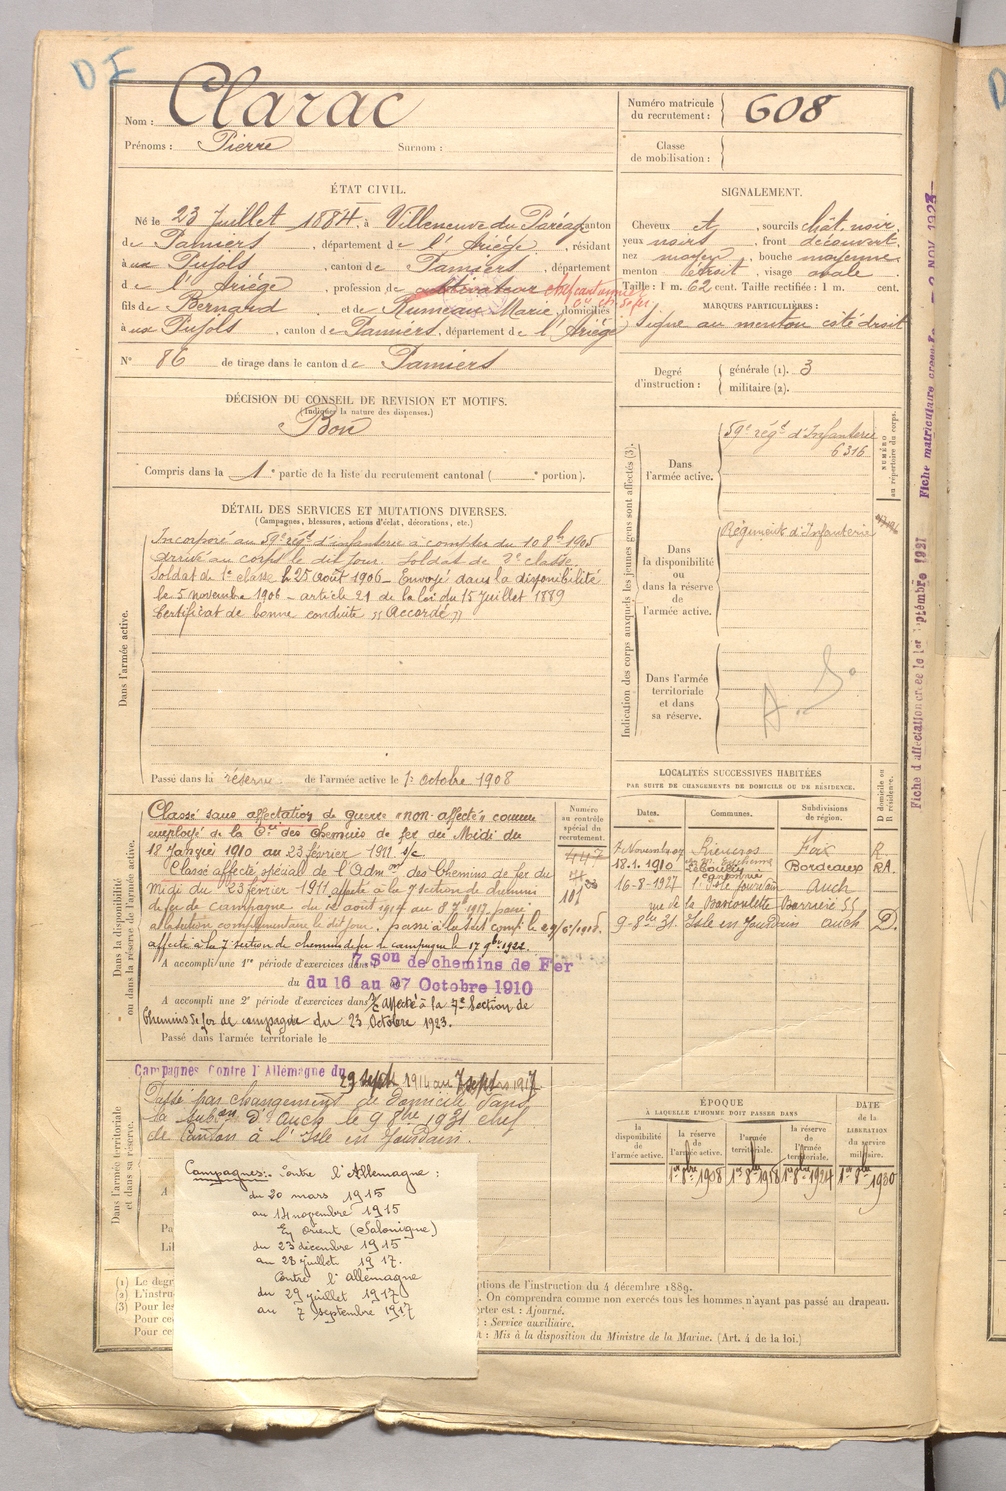 D I
Nom : Clarac
Prénoms : Pierre Surnom :
Numéro matricule
du recrutement : 608
Classe
de mobilisation :
ÉTAT CIVIL.
Né le 23 Juillet 1884, à Villeneuve du Paréage, canton
de Pamiers, département de l'Ariége, résidant
à Pujols, canton de Pamiers, département
de l'Ariége, profession de cultivateur chef cantonnier
fils de Bernard et de Rumeau Marie, domiciliés
à Pujols, canton de Pamiers, département de l'Ariége
N° 86 de tirage dans le canton de Pamiers
SIGNALEMENT.
Cheveux et, sourcils chât. noir,
yeux noirs, front découvert,
nez moyen, bouche moyenne
menton étroit, visage ovale.
Taille : 1 m. 62 cent. Taille rectifiée : 1 m. cent.
MARQUES PARTICULIÈRES :
Signe au menton côté droit
Degré
d'instruction :
générale (1). 3
militaire (2).
DÉCISION DU CONSEIL DE REVISION ET MOTIFS.
(Indiquer la nature des dispenses.)
Bon
Compris dans la 1e partie de la liste du recrutement cantonal ( e portion).
DÉTAIL DES SERVICES ET MUTATIONS DIVERSES.
(Campagnes, blessures, actions d'éclat, décorations, etc.)
Dans l'armée active.
Incorporé au 59e régt d'infanterie à compter du 10 8bre 1905
arrivé au corps le dit jour. Soldat de 2e classe.
Soldat de 1e classe le 25 août 1906 - Envoyé dans la disponibilité
le 5 novembre 1906 - article 21 de la loi du 15 Juillet 1889
Certificat de bonne conduite "Accordé"
Passé dans la réserve de l'armée active le 1er octobre 1908
Indication des corps auxquels les jeunes gens sont affectés (3).
Dans
l'armée active.
59e régt d'Infanterie
6316
NUMÉRO
au répertoire du corps.
Dans
la disponibilité
ou
dans la réserve
de
l'armée active.
Régiment d'Infanterie
Dans l'armée
territoriale
et dans
sa réserve.
Fiche matricule
Fiche d'affectation créée le 1er Septembre 1931
Dans la disponibilité
ou dans la réserve de l'armée active.
Classé sans affectation de guerre "non affecté" comme
employé de la Cie des Chemins de fer du Midi du
18 Janvier 1910 au 23 février 1911 s/c
Classé affecté spécial de l'Admon des Chemins de fer du
Midi du 23 février 1911 affecté à la 7 section de chemins
de fer de campagne du août 1914 au 8 7bre 1917. passé
affectation complémentaire le dit jour. passé à la subdt compt le 29/6/1918.
affecté à la 7e section de chemins de fer de campagne le 17 9bre 1922.
A accompli une 1re période d'exercices dans 7. Son de chemins de Fer
du 16 au 27 Octobre 1910
A accompli une 2e période d'exercices dans affecté à la 7e Section de
Chemins de fer de campagne du 23 Octobre 1923.
Passé dans l'armée territoriale le
Numéro
au contrôle
spécial du
recrutement.
447
LOCALITÉS SUCCESSIVES HABITÉES
PAR SUITE DE CHANGEMENTS DE DOMICILE OU DE RÉSIDENCE.
Dates. Communes. Subdivisions
de région. D domicile ou
R résidence.
7 Novembre 07 Rieucros Foix R
18.1.1910 Bordeaux RA.
16-8-1927 l'Isle Jourdain Auch
rue de la
9-8bre 31. Isle en Jourdain auch D.
Dans l'armée territoriale
et dans sa réserve.
Campagnes Contre l'Allemagne du 29 sept 1914 au 7 sept 1917
Passé par changement de domicile dans
la subon d'Auch le 9 8bre 1931 chef
de Canton à l'Isle en Jourdain.
ÉPOQUE
À LAQUELLE L'HOMME DOIT PASSER DANS
DATE
DE LA
LIBÉRATION
du service
militaire.
la
disponibilité
de
l'armée active.
la réserve
de
l'armée active.
l'armée
territoriale.
la réserve
de
l'armée
territoriale.
1er 8bre 1908 1er 8bre 1918 1er 8bre 1924 1er 8bre 1930
Campagnes :. Contre l'Allemagne :
du 20 mars 1915
au 14 novembre 1915
En Orient (Salonique)
du 23 décembre 1915
au 28 juillet 1917.
Contre l'allemagne
du 29 juillet 1917
au 7 septembre 1917
(1) Le degr
(2) L'instru
(3) Pour les
Pour ce
Pour ce
ptions de l'instruction du 4 décembre 1889.
. On comprendra comme non exercés tous les hommes n'ayant pas passé au drapeau.
rter est : Ajourné.
: Service auxiliaire.
: Mis à la disposition du Ministre de la Marine. (Art. 4 de la loi.)